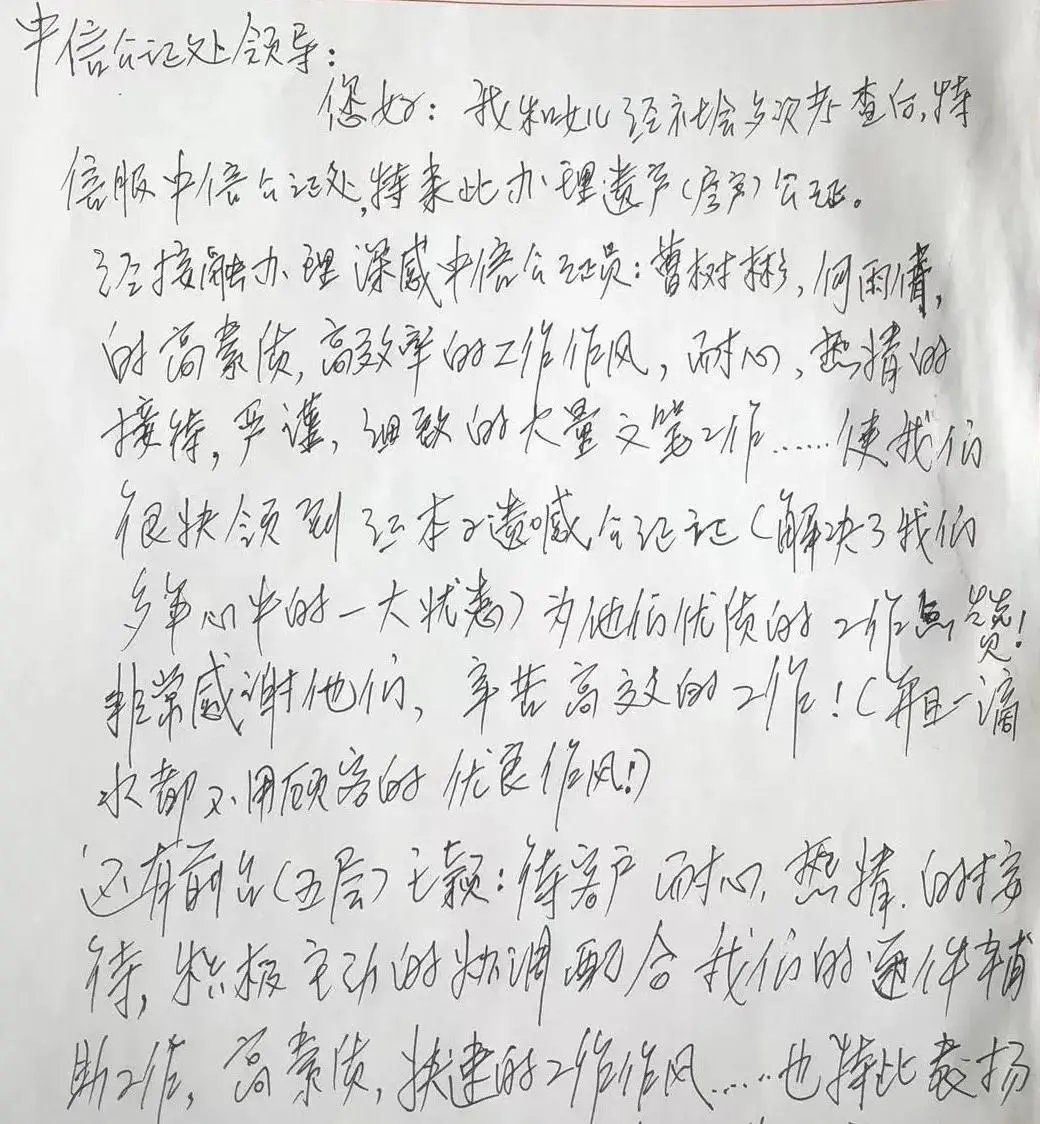 中信公证处领导：
您好：我和女儿经社会多次考查后，特
信服中信公证处，特来此办理遗产（房产）公证。
经接触办理深感中信公证员：曹树彬，何雨倩，
的高素质，高效率的工作作风，耐心，热情的
接待，严谨，细致的大量文笔工作……使我们
很快领到 公证证（解决了我们
多年心中的一大忧愁）为他们优质的工作点赞！
非常感谢他们，辛苦高效的工作！（并且一滴
水都不用顾客的优良作风！）
还有前台（五层）王颖：待客户耐心，热情，的接
待，积极主动的协调配合我们的 件辅
助工作，高素质，快速的工作作风……也特此表扬